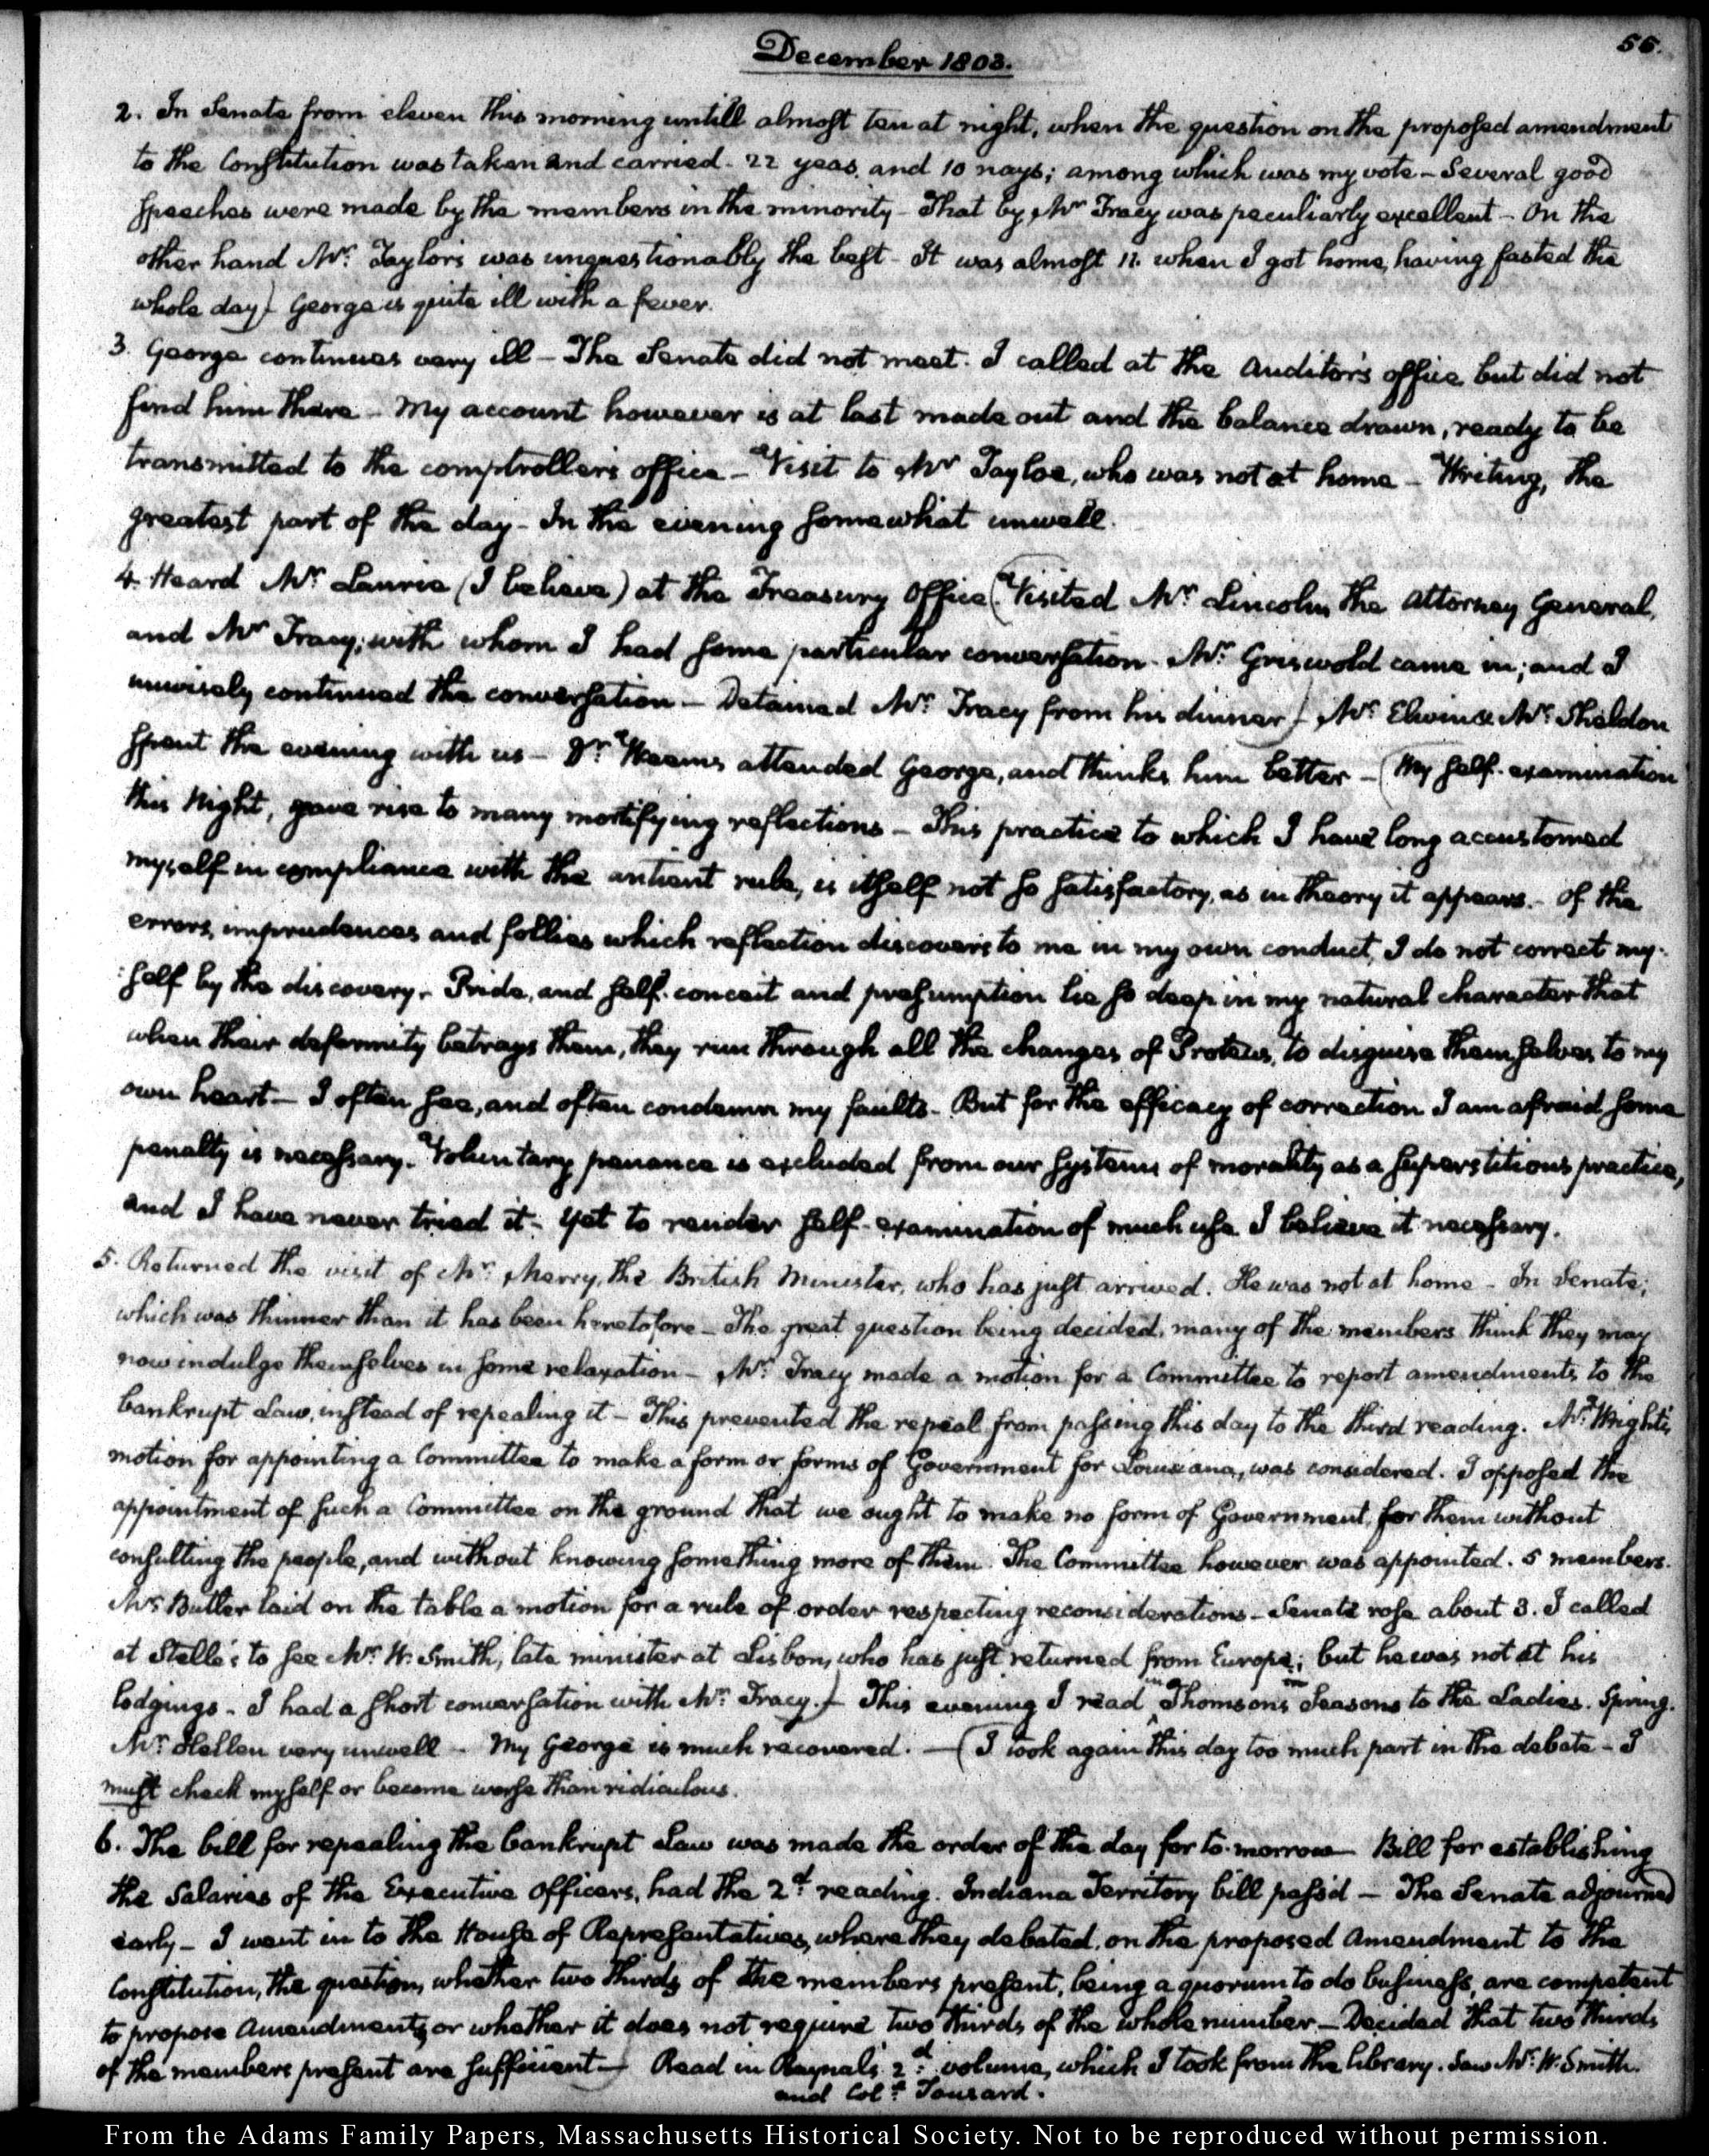 December 1803.
55.
2. In Senate from eleven this morning untill almost ten at night, when the question on the proposed amendment
to the Constitution was taken and carried - 22 yeas, and 10 nays; among which was my vote - Several good
speeches were made by the members in the minority - That by Mr Tracy was peculiarly excellent - On the
other hand Mr: Taylor's was unquestionably the best - It was almost 11. when I got home, having fasted the
whole day) George is quite ill with a fever.
3. George continues very ill - The Senate did not meet. I called at the Auditor's office but did not
find him there - My account however is at last made out and the balance drawn, ready to be
transmitted to the comptroller's office - Visit to Mr Tayloe, who was not at home - Writing, the
greatest part of the day - In the evening somewhat unwell.
4. Heard Mr Laurie (I believe) at the Treasury Office (Visited Mr Lincoln the Attorney General,
and Mr Tracy; with whom I had some particular conversation - Mr: Griswold came in; and I
unwisely continued the conversation - Detained Mr: Tracy from his dinner) Mr: Elwin & Mr: Sheldon
spent the evening with us - Dr: Weems attended George, and thinks him better - (My self-examination
this Night, gave rise to many mortifying reflections - This practice to which I have long accustomed
myself in compliance with the antient rule, is itself not so satisfactory, as in theory it appears. - Of the
errors, imprudences and follies which reflection discovers to me in my own conduct, I do not correct my-
:self by the discovery - Pride, and self-conceit and presumption lie so deep in my natural character that
when their deformity betrays them, they run through all the changes of Proteus, to disguise themselves to my
own heart - I often see, and often condemn my faults - But for the efficacy of correction I am afraid some
penalty is necessary. Voluntary penance is excluded from our systems of morality as a superstitious practice,
and I have never tried it - Yet to render self-examination of much use I believe it necessary.
5. Returned the visit of Mr: Merry, the British Minister, who has just arrived. He was not at home - In Senate;
which was thinner than it has been heretofore - The great question being decided, many of the members think they may
now indulge themselves in some relaxation - Mr: Tracy made a motion for a Committee to report amendments to the
bankrupt Law, instead of repealing it - This prevented the repeal from passing this day to the third reading. Mr: Wright's
motion for appointing a Committee to make a form or forms of Government for Louisiana, was considered. I opposed the
appointment of such a Committee on the ground that we ought to make no form of Government, for them without
consulting the people, and without knowing something more of them. The Committee however was appointed. 5 members.
Mr: Butler laid on the table a motion for a rule of order respecting reconsiderations - Senate rose about 3. I called
at Stelle's to see Mr: W. Smith, late minister at Lisbon, who has just returned from Europe; but he was not at his
lodgings - I had a short conversation with Mr: Tracy.) This evening I read in Thomson's Seasons to the Ladies. Spring.
Mr: Hellen very unwell - My George is much recovered. - (I took again this day too much part in the debate - I
must check myself or become worse than ridiculous.
6. The bill for repealing the bankrupt Law was made the order of the day for to-morrow - Bill for establishing
the Salaries of the Executive Officers, had the 2d: reading. Indiana Territory bill pass'd - The Senate adjourned
early - I went in to the House of Representatives, where they debated, on the proposed Amendment to the
Constitution, the question, whether two thirds of the members present, being a quorum to do business, are competent
to propose Amendments, or whether it does not require two thirds of the whole number - Decided that two thirds
of the members present are sufficient -) Read in Raynal's 2d: volume, which I took from the library. Saw Mr: W. Smith.
and Col: Tousard.
From the Adams Family Papers, Massachusetts Historical Society. Not to be reproduced without permission.